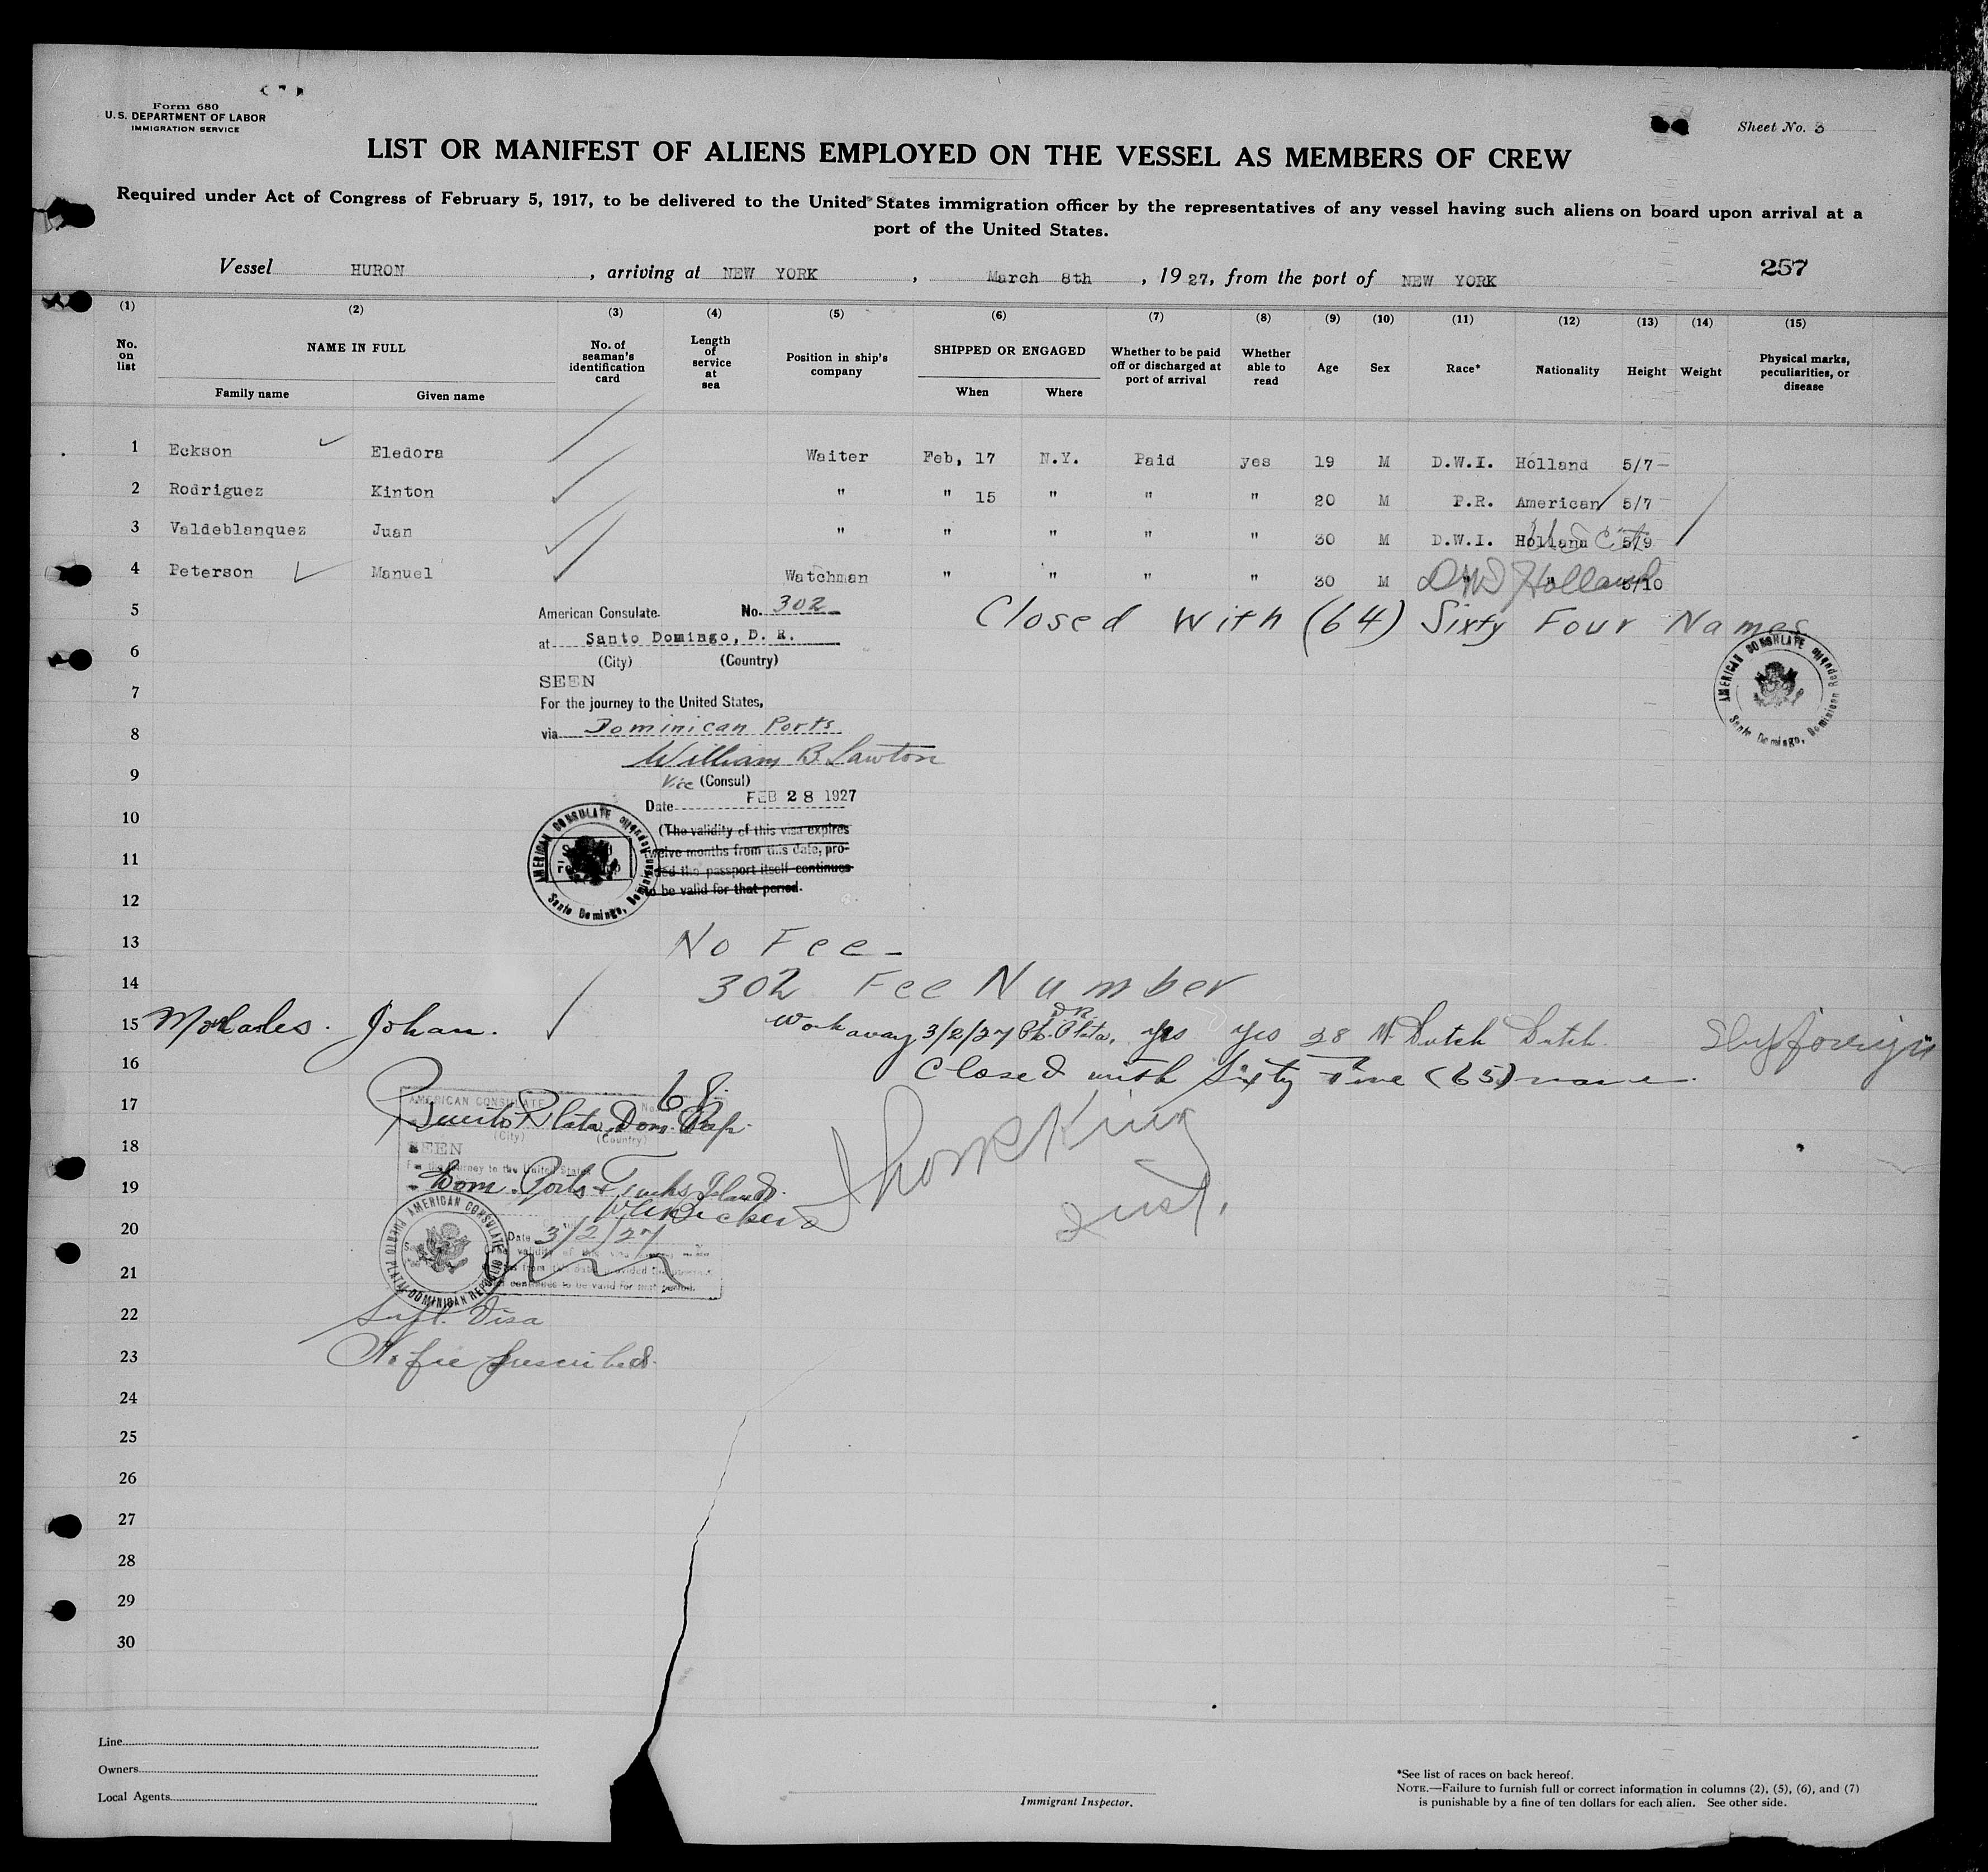 Form 680
U.S. DEPARTMENT OF LABOR
IMMIGRATION SERVICE
Sheet No. 3
LIST OR MANIFEST OF ALIENS EMPLOYED ON THE VESSEL AS MEMBERS OF CREW
Required under Act of Congress of February 5, 1917, to be delivered to the United States immigration officer by the representatives of any vessel having such aliens on board upon arrival at a
port of the United States.
Vessel HURON, arriving at NEW YORK, March 8th, 1927, from the port of NEW YORK 257
(1) (2) (3) (4) (5) (6) (7) (8) (9) (10) (11) (12) (13) (14) (15)
No. on list NAME IN FULL Family name Given name No. of seaman's identification card Length of service at sea Position in ship's company SHIPPED OR ENGAGED When Where Whether to be paid off or discharged at port of arrival Whether able to read Age Sex Race* Nationality Height Weight Physical marks, peculiarities, or disease
1 Eckson Eledora Waiter Feb, 17 N.Y. Paid yes 19 M D.W.I. Holland 5/7
2 Rodriguez Kinton " " 15 " " " 20 M P.R. American 5/7
3 Valdeblanquez Juan " " " " " 30 M D.W.I. Holland U S Cit 5/9
4 Peterson Manuel Watchman " " " " 30 M " DWI " Holland 5/10
5 Closed with (64) Sixty Four Names
American Consulate No. 302
at Santo Domingo, D. R.
6 (City) (Country)
AMERICAN CONSULATE Santo Domingo, Dominican Republic
7 SEEN
For the journey to the United States,
8 via Dominican Ports
William B. Lawton
9 Vice (Consul)
Date FEB 28 1927
10 (The validity of this visa expires
11 twelve months from this date, pro-
vided the passport itself continues
12 to be valid for that period.
AMERICAN CONSULATE Santo Domingo, Dominican Republic
13 No Fee-
14 302 Fee Number
15 Johan. Workaway 3/2/27 Pt. Plata, D.R. yes yes 28 M Dutch Dutch
16 Closed with Sixty Five (65) name
17 AMERICAN CONSULATE No. 68
Puerto Plata, Dom. Rep.
(City) (Country)
18 SEEN
For the journey to the United States
19 Dom. Ports & Turks Island.
20 Date 3/2/27
21 AMERICAN CONSULATE PUERTO PLATA DOMINICAN REPUBLIC
continues to be valid for that period.
22 Supl. Visa
23 No fee prescribed.
24
25
26
27
28
29
30
Line
Owners
Local Agents
Immigrant Inspector.
*See list of races on back hereof.
NOTE.—Failure to furnish full or correct information in columns (2), (5), (6), and (7)
is punishable by a fine of ten dollars for each alien. See other side.